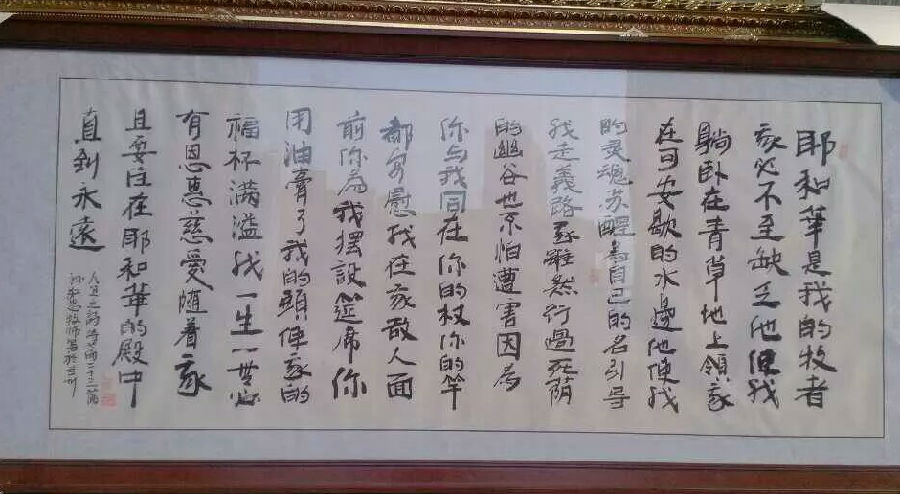 耶和華是我的牧者
我必不至缺乏他使我
躺卧在青草地上領我
在可安歇的水邊他使我
的灵魂苏醒為自己的名引导
我走義路我雖然行過死荫
的幽谷也不怕遭害因為
你与我同在你的杖你的竿
都安慰我在我敌人面
前你為我摆設筵席你
用油膏了我的頭使我的
福杯满溢我一生一世必
有恩惠慈愛随着我
且要住在耶和華的殿中
直到永遠
诗篇二十三篇
牧师